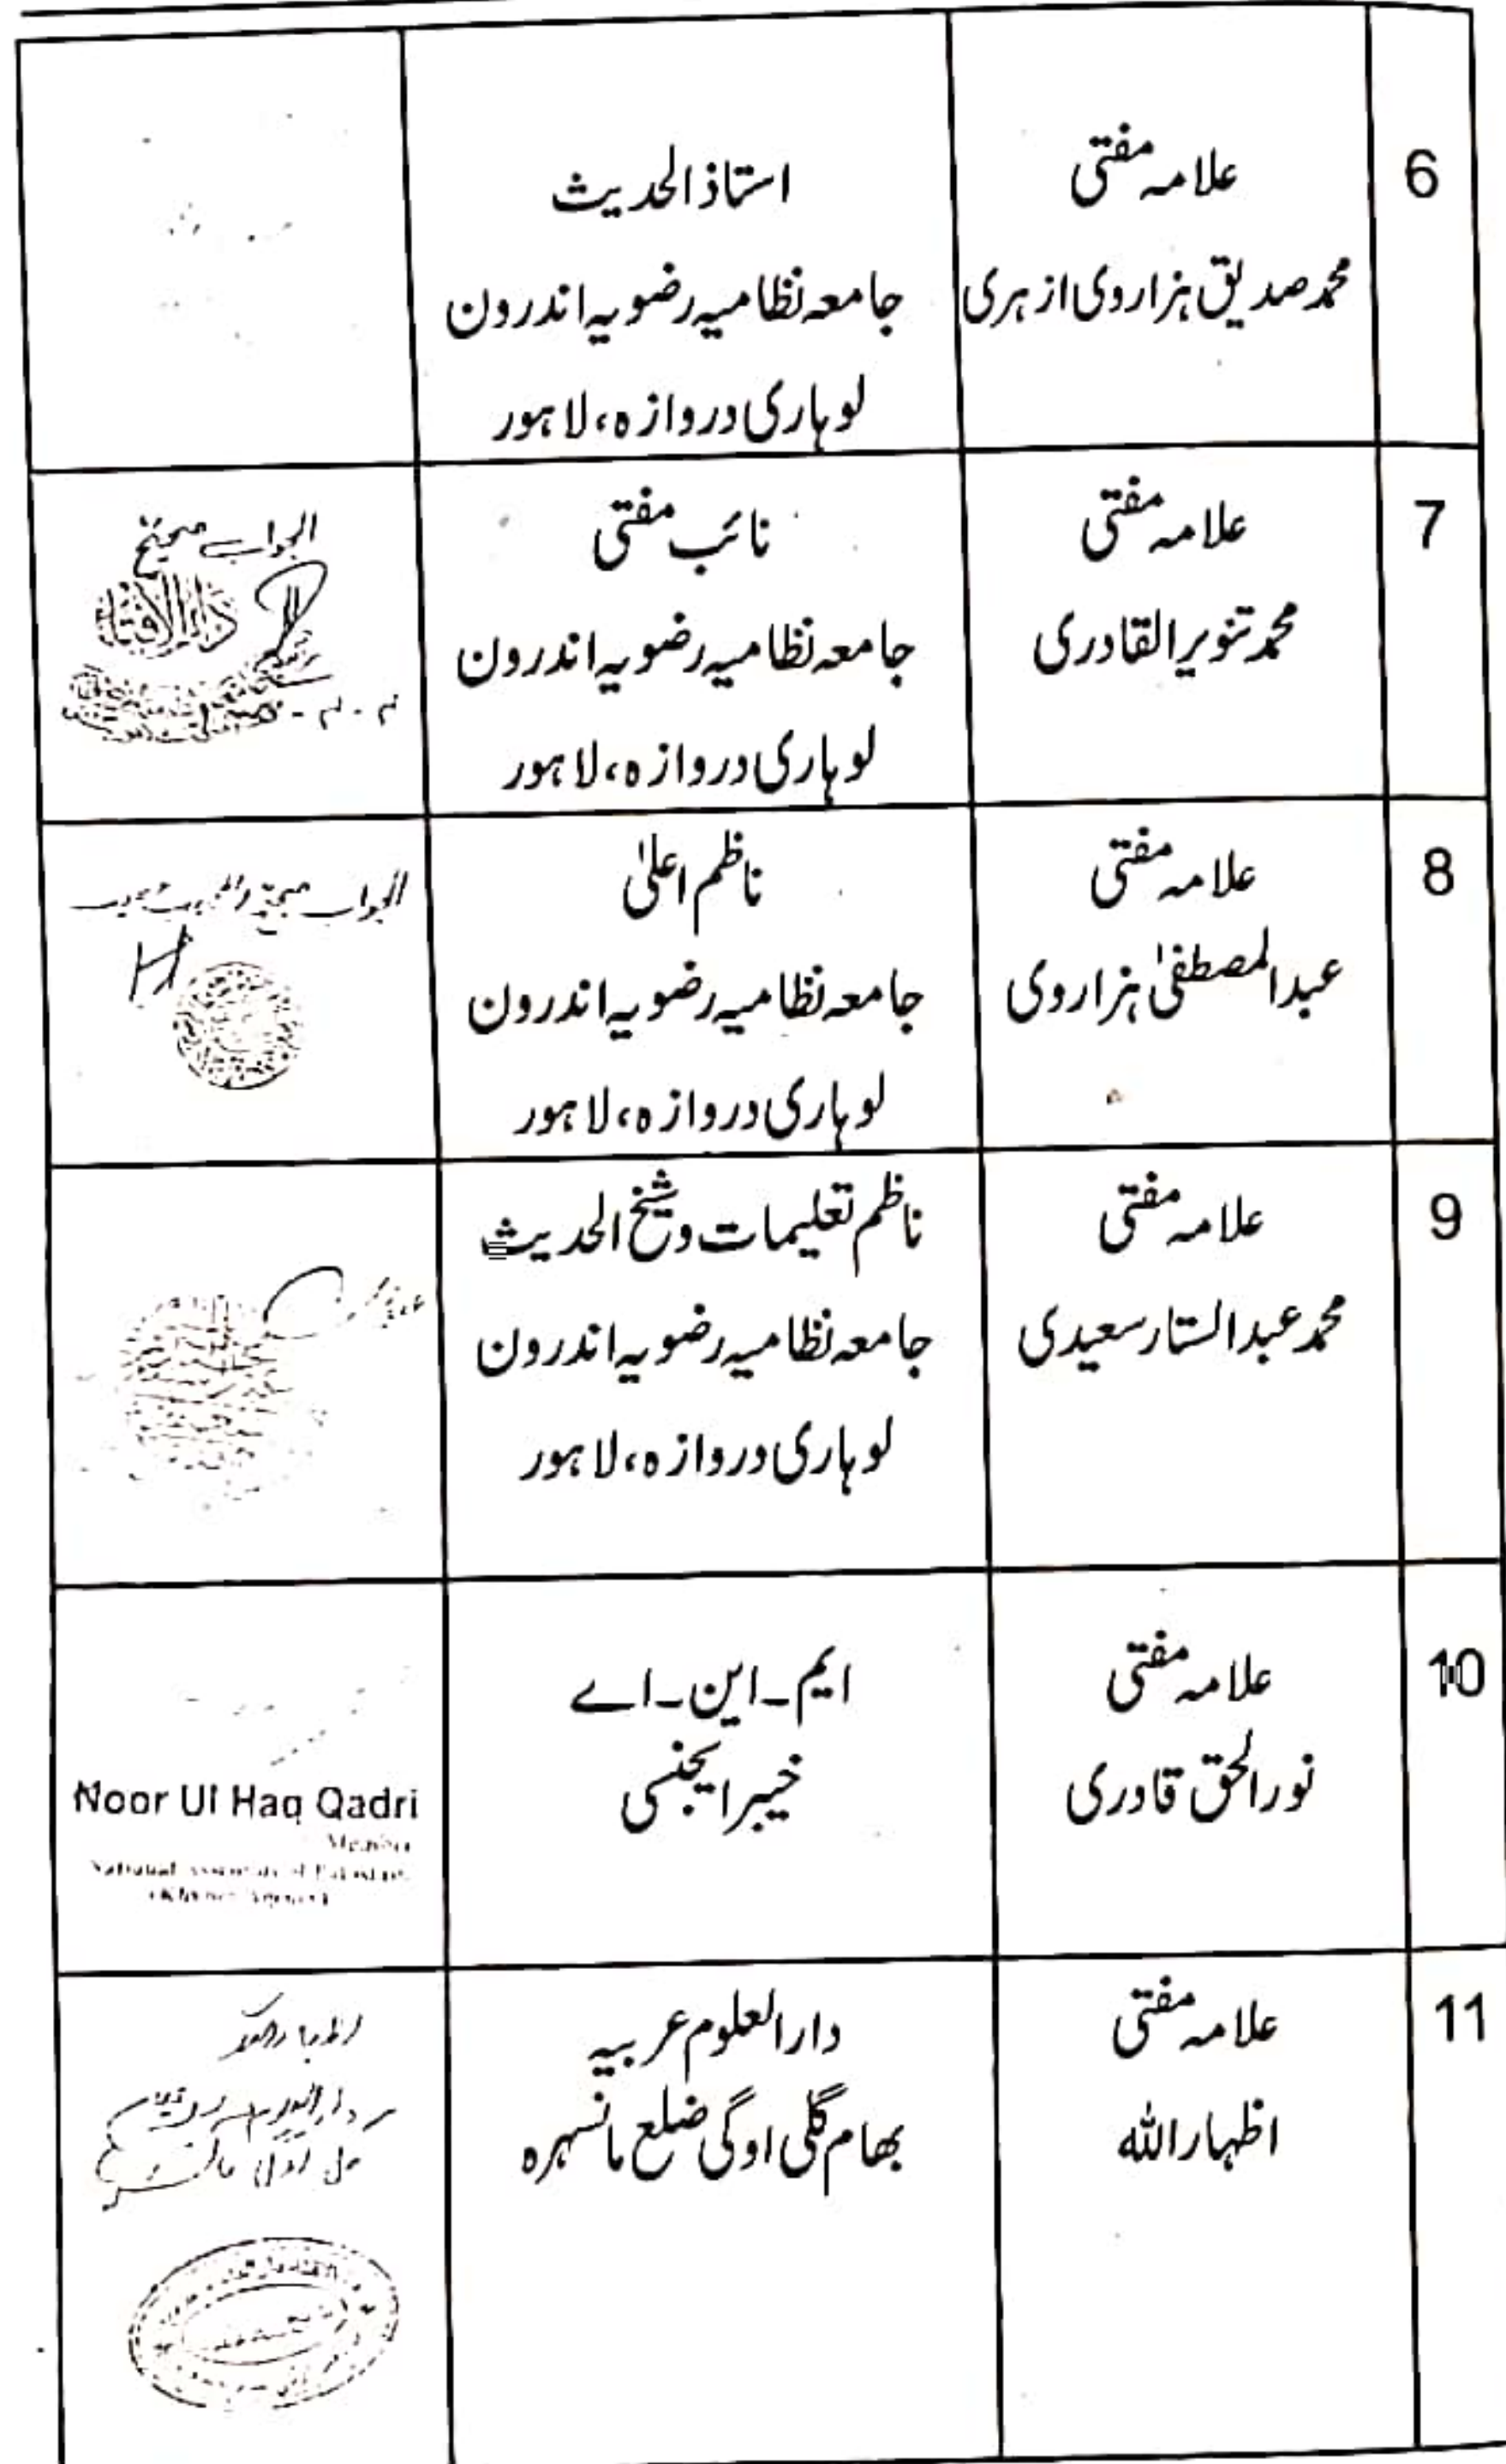 6
علامہ مفتی
محمد صدیق ہزاروی ازہری
استاذ الحدیث
جامعہ نظامیہ رضویہ اندرون
لوہاری دروازہ، لاہور
7
علامہ مفتی
محمد تنویر القادری
نائب مفتی
جامعہ نظامیہ رضویہ اندرون
لوہاری دروازہ، لاہور
الجواب صحیح
دار الافتاء
8
علامہ مفتی
عبدالمصطفیٰ ہزاروی
ناظم اعلیٰ
جامعہ نظامیہ رضویہ اندرون
لوہاری دروازہ، لاہور
الجواب صحیح
9
علامہ مفتی
محمد عبدالستار سعیدی
ناظم تعلیمات و شیخ الحدیث
جامعہ نظامیہ رضویہ اندرون
لوہاری دروازہ، لاہور
10
علامہ مفتی
نورالحق قادری
ایم۔این۔اے
خیبر ایجنسی
Noor Ul Haq Qadri
Member
National Assembly of Pakistan
11
علامہ مفتی
اظہار اللہ
دارالعلوم عربیہ
بھام گلی اوگی ضلع مانسہرہ